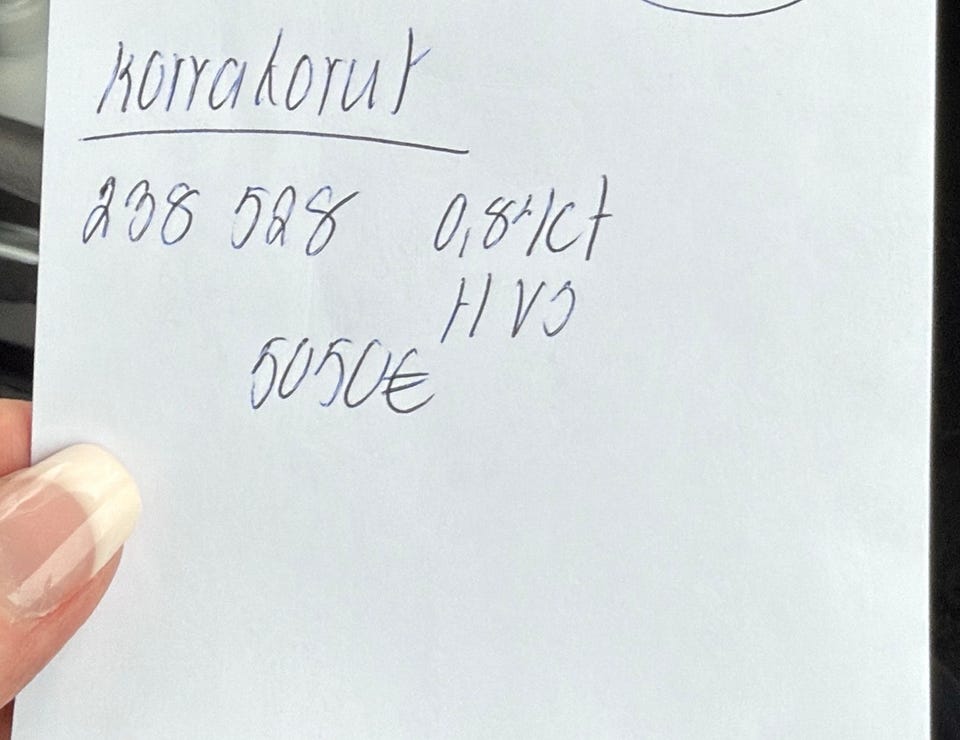 Korvakorut
238 528 0,84ct
H VS
5050€